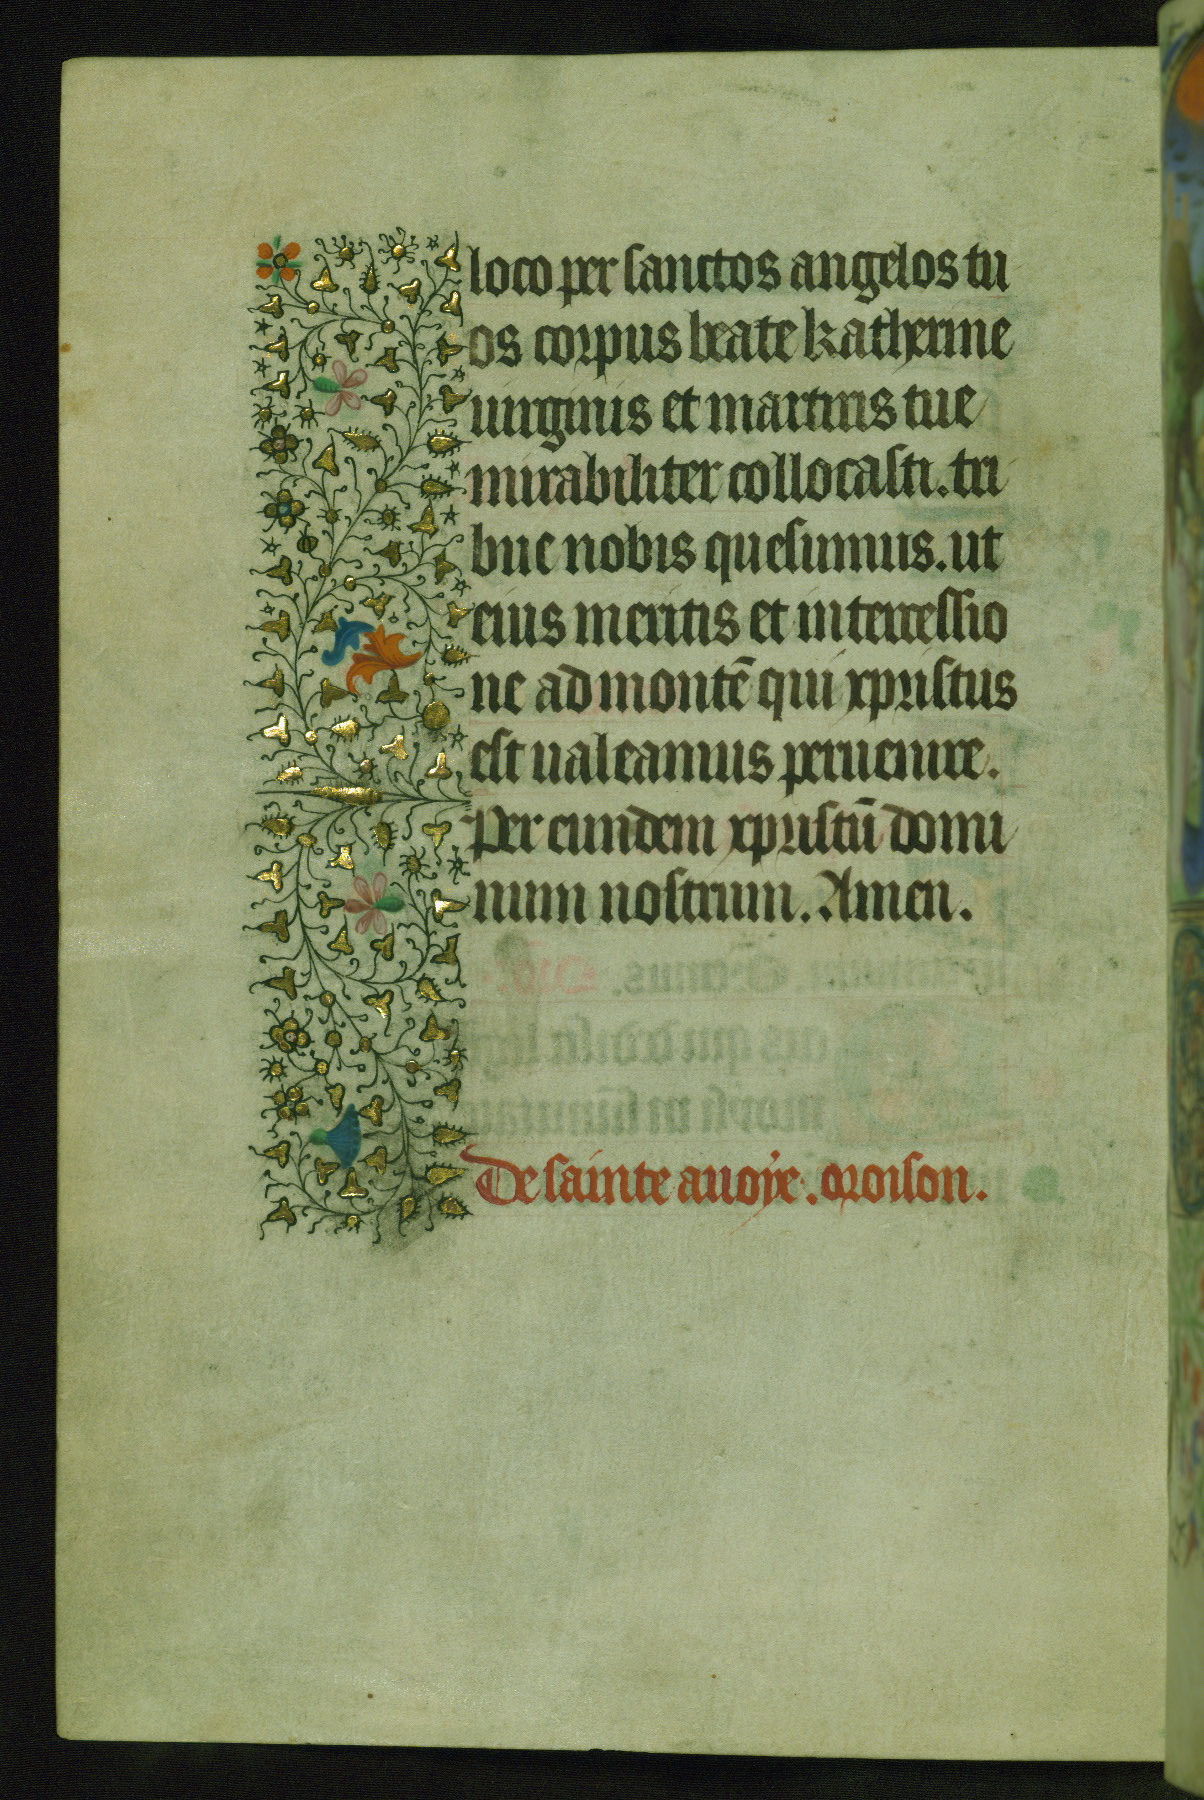 loco per sanctos angelos tu
os corpus beate katherine
uirginis et martiris tue
mirabiliter collocasti. tri
bue nobis quesumus. ut
eius meritis et intercessio
ne ad montē qui xpristus
est ualeamus peruenire.
Per eundem xpristū domi
num nostrum. Amen.
De sainte auoye. oroison.